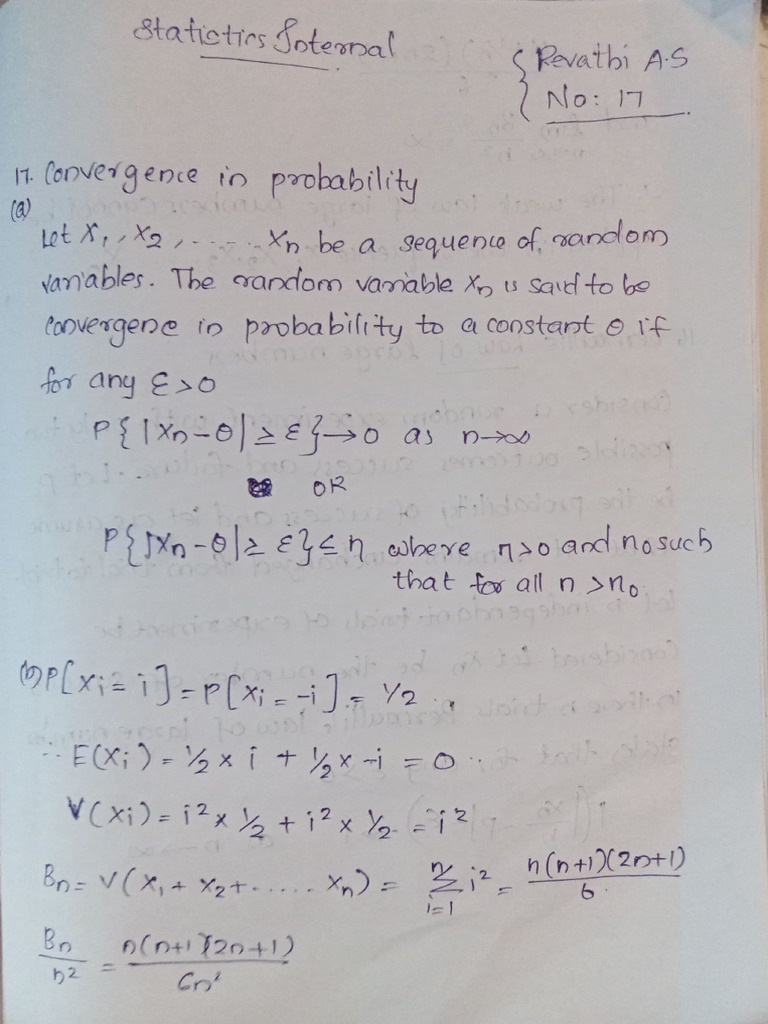 Statictirs Internal
Revathi A.S
No: 17
17. Convergence in probability
(a)
Let X₁, X₂, ...... Xn be a sequence of random
variables. The random variable Xn is said to be
Convergene in probability to a constant θ if
for any ε>0
P{|Xn-θ|≥ε}→0 as n→∞
OR
P{|Xn-θ|≥ε}≤η where η>0 and no such
that for all n>n₀
(b) P[Xi=i]=P[Xi=-i]=1/2
∴ E(Xi)=1/2 x i + 1/2 x -i = 0
V(Xi)=i² x 1/2 + i² x 1/2 = i²
Bn = V(X₁+X₂+..... Xn) = n Σ i=1 i² = n(n+1)(2n+1) / 6
Bn / n² = n(n+1)(2n+1) / 6n²